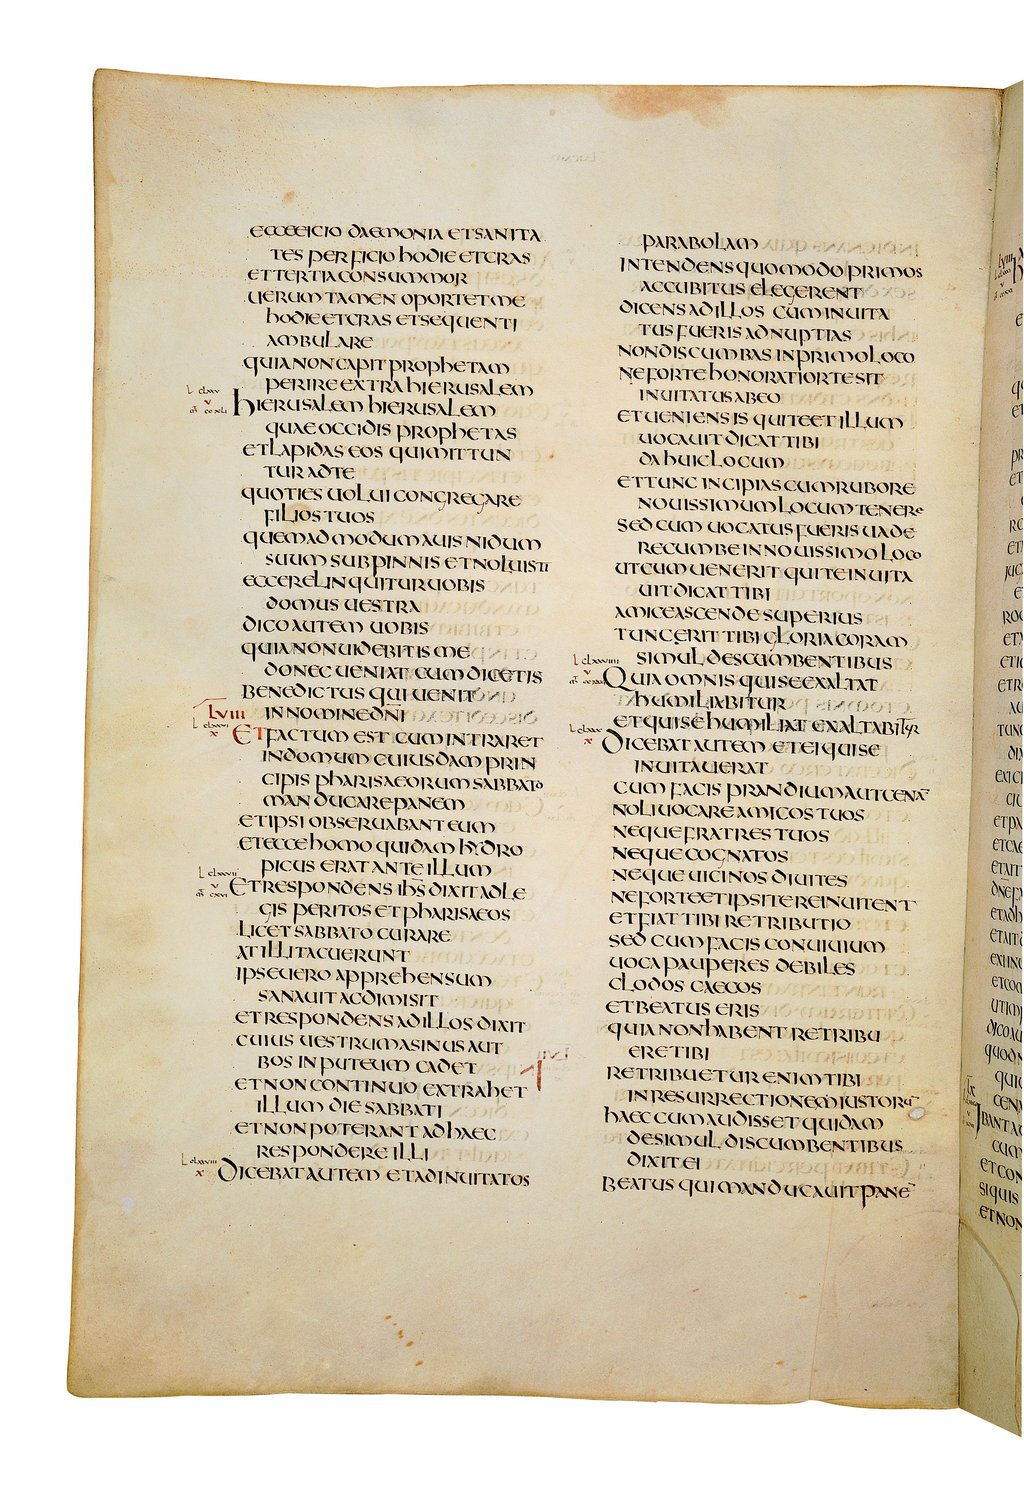 ECCEEICIO DAEMONIA ET SANITA
TES PERFICIO HODIE ET CRAS
ET TERTIA CONSUMMOR
UERUM TAMEN OPORTET ME
HODIE ET CRAS ET SEQUENTI
AMBULARE
QUIA NON CAPIT PROPHETAM
PERIRE EXTRA HIERUSALEM
HIERUSALEM HIERUSALEM
QUAE OCCIDIS PROPHETAS
ET LAPIDAS EOS QUI MITTUN
TUR AD TE
QUOTIES UOLUI CONGREGARE
FILIOS TUOS
QUEMADMODUM AUIS NIDUM
SUUM SUB PINNIS ET NOLUISTI
ECCE RELINQUITUR UOBIS
DOMUS UESTRA
DICO AUTEM UOBIS
QUIA NON UIDEBITIS ME
DONEC UENIAT CUM DICETIS
BENEDICTUS QUI UENIT
LVIII IN NOMINE DN̄I
ET FACTUM EST CUM INTRARET
IN DOMUM CUIUSDAM PRIN
CIPIS PHARISAEORUM SABBATO
MANDUCARE PANEM
ET IPSI OBSERUABANT EUM
ET ECCE HOMO QUIDAM HYDRO
PICUS ERAT ANTE ILLUM
ET RESPONDENS IHS̄ DIXIT AD LE
GIS PERITOS ET PHARISAEOS
LICET SABBATO CURARE
AT ILLI TACUERUNT
IPSE UERO APPREHENSUM
SANAUIT AC DIMISIT
ET RESPONDENS AD ILLOS DIXIT
CUIUS UESTRUM ASINUS AUT
BOS IN PUTEUM CADET
ET NON CONTINUO EXTRAHET
ILLUM DIE SABBATI
ET NON POTERANT AD HAEC
RESPONDERE ILLI
DICEBAT AUTEM ET AD INUITATOS
PARABOLAM
INTENDENS QUOMODO PRIMOS
ACCUBITUS ELEGERENT
DICENS AD ILLOS CUM INUITA
TUS FUERIS AD NUPTIAS
NON DISCUMBAS IN PRIMO LOCO
NE FORTE HONORATIOR TE SIT
INUITATUS AB EO
ET UENIENS IS QUI TE ET ILLUM
UOCAUIT DICAT TIBI
DA HUIC LOCUM
ET TUNC INCIPIAS CUM RUBORE
NOUISSIMUM LOCUM TENERE
SED CUM UOCATUS FUERIS UADE
RECUMBE IN NOUISSIMO LOCO
UT CUM UENERIT QUI TE INUITA
UIT DICAT TIBI
AMICE ASCENDE SUPERIUS
TUNC ERIT TIBI GLORIA CORAM
SIMUL DESCUMBENTIBUS
QUIA OMNIS QUI SE EXALTAT
HUMILIABITUR
ET QUI SE HUMILIAT EXALTABITUR
DICEBAT AUTEM ET EI QUI SE
INUITAUERAT
CUM FACIS PRANDIUM AUT CENĀ
NOLI UOCARE AMICOS TUOS
NEQUE FRATRES TUOS
NEQUE COGNATOS
NEQUE UICINOS DIUITES
NE FORTE ET IPSI TE REINUITENT
ET FIAT TIBI RETRIBUTIO
SED CUM FACIS CONUIUIUM
UOCA PAUPERES DEBILES
CLODOS CAECOS
ET BEATUS ERIS
QUIA NON HABENT RETRIBU
ERE TIBI
RETRIBUETUR ENIM TIBI
IN RESURRECTIONEM IUSTORUM
HAEC CUM AUDISSET QUIDAM
DE SIMUL DISCUMBENTIBUS
DIXIT EI
BEATUS QUI MANDUCAUIT PANĒ